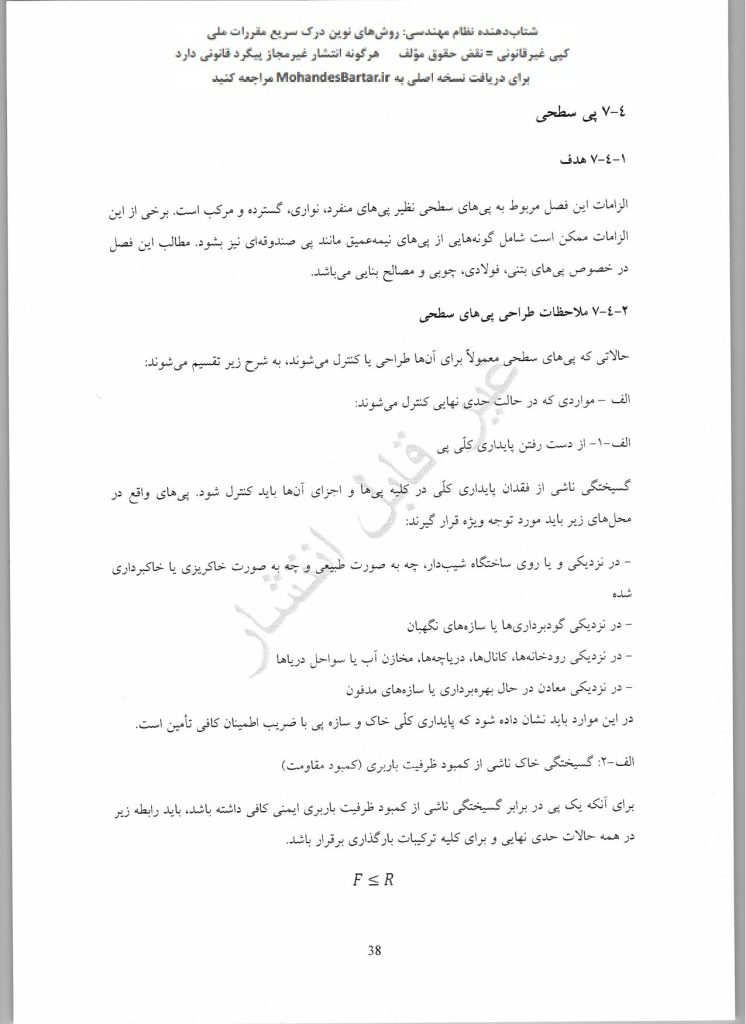 شتاب‌دهنده نظام مهندسی: روش‌های نوین درک سریع مقررات ملی
کپی غیرقانونی = نقض حقوق مؤلف هرگونه انتشار غیرمجاز پیگرد قانونی دارد
برای دریافت نسخه اصلی به MohandesBartar.ir مراجعه کنید
۷-٤ پی سطحی
۷-٤-۱ هدف
الزامات این فصل مربوط به پی‌های سطحی نظیر پی‌های منفرد، نواری، گسترده و مرکب است. برخی از این
الزامات ممکن است شامل گونه‌هایی از پی‌های نیمه‌عمیق مانند پی صندوقه‌ای نیز بشود. مطالب این فصل
در خصوص پی‌های بتنی، فولادی، چوبی و مصالح بنایی می‌باشد.
۷-٤-۲ ملاحظات طراحی پی‌های سطحی
حالاتی که پی‌های سطحی معمولاً برای آن‌ها طراحی یا کنترل می‌شوند، به شرح زیر تقسیم می‌شوند:
الف – مواردی که در حالت حدی نهایی کنترل می‌شوند:
الف-۱- از دست رفتن پایداری کلّی پی
گسیختگی ناشی از فقدان پایداری کلّی در کلیه پی‌ها و اجزای آن‌ها باید کنترل شود. پی‌های واقع در
محل‌های زیر باید مورد توجه ویژه قرار گیرند:
– در نزدیکی و یا روی ساختگاه شیب‌دار، چه به صورت طبیعی و چه به صورت خاکریزی یا خاکبرداری
شده
– در نزدیکی گودبرداری‌ها یا سازه‌های نگهبان
– در نزدیکی رودخانه‌ها، کانال‌ها، دریاچه‌ها، مخازن آب یا سواحل دریاها
– در نزدیکی معادن در حال بهره‌برداری یا سازه‌های مدفون
در این موارد باید نشان داده شود که پایداری کلّی خاک و سازه پی با ضریب اطمینان کافی تأمین است.
الف-۲: گسیختگی خاک ناشی از کمبود ظرفیت باربری (کمبود مقاومت)
برای آنکه یک پی در برابر گسیختگی ناشی از کمبود ظرفیت باربری ایمنی کافی داشته باشد، باید رابطه زیر
در همه حالات حدی نهایی و برای کلیه ترکیبات بارگذاری برقرار باشد.
F ≤ R
38
غیر قابل انتشار